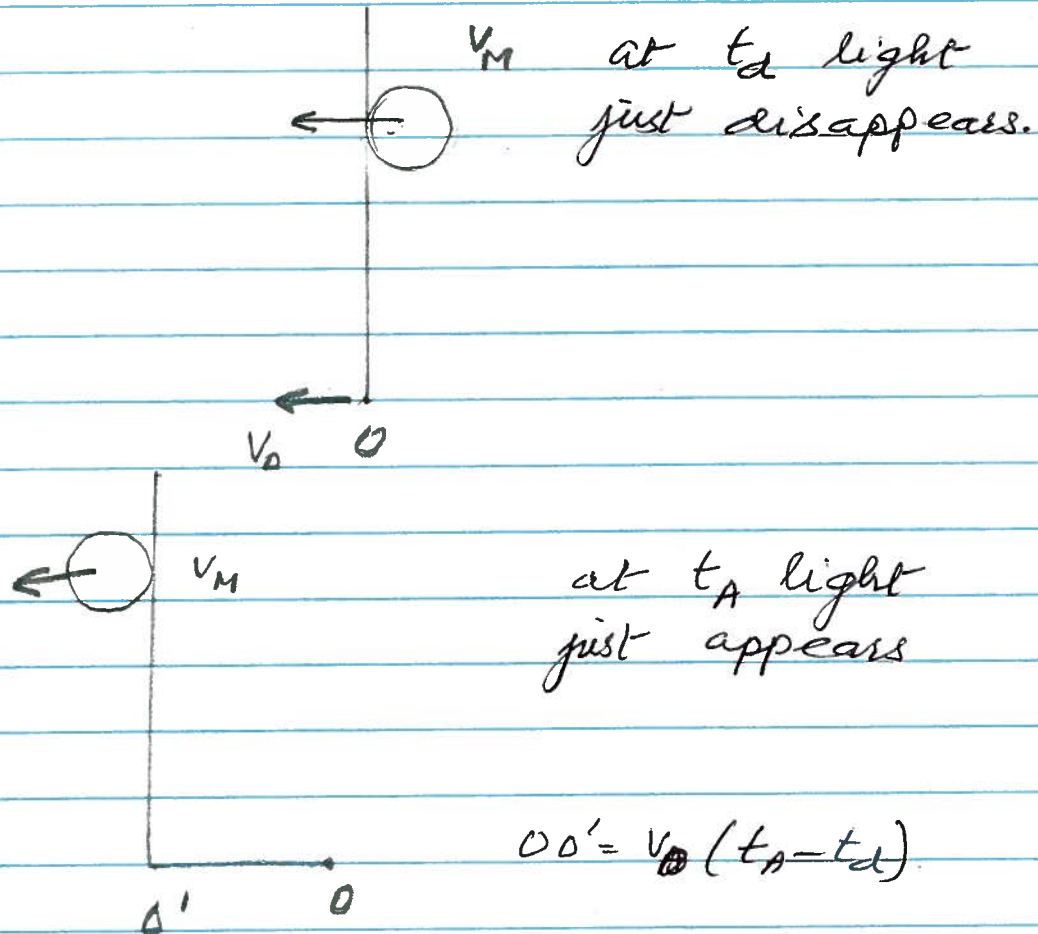 V_M at t_d light
just disappears.
V_O O
V_M at t_A light
just appears
OO' = V_O (t_A - t_d)
O' O